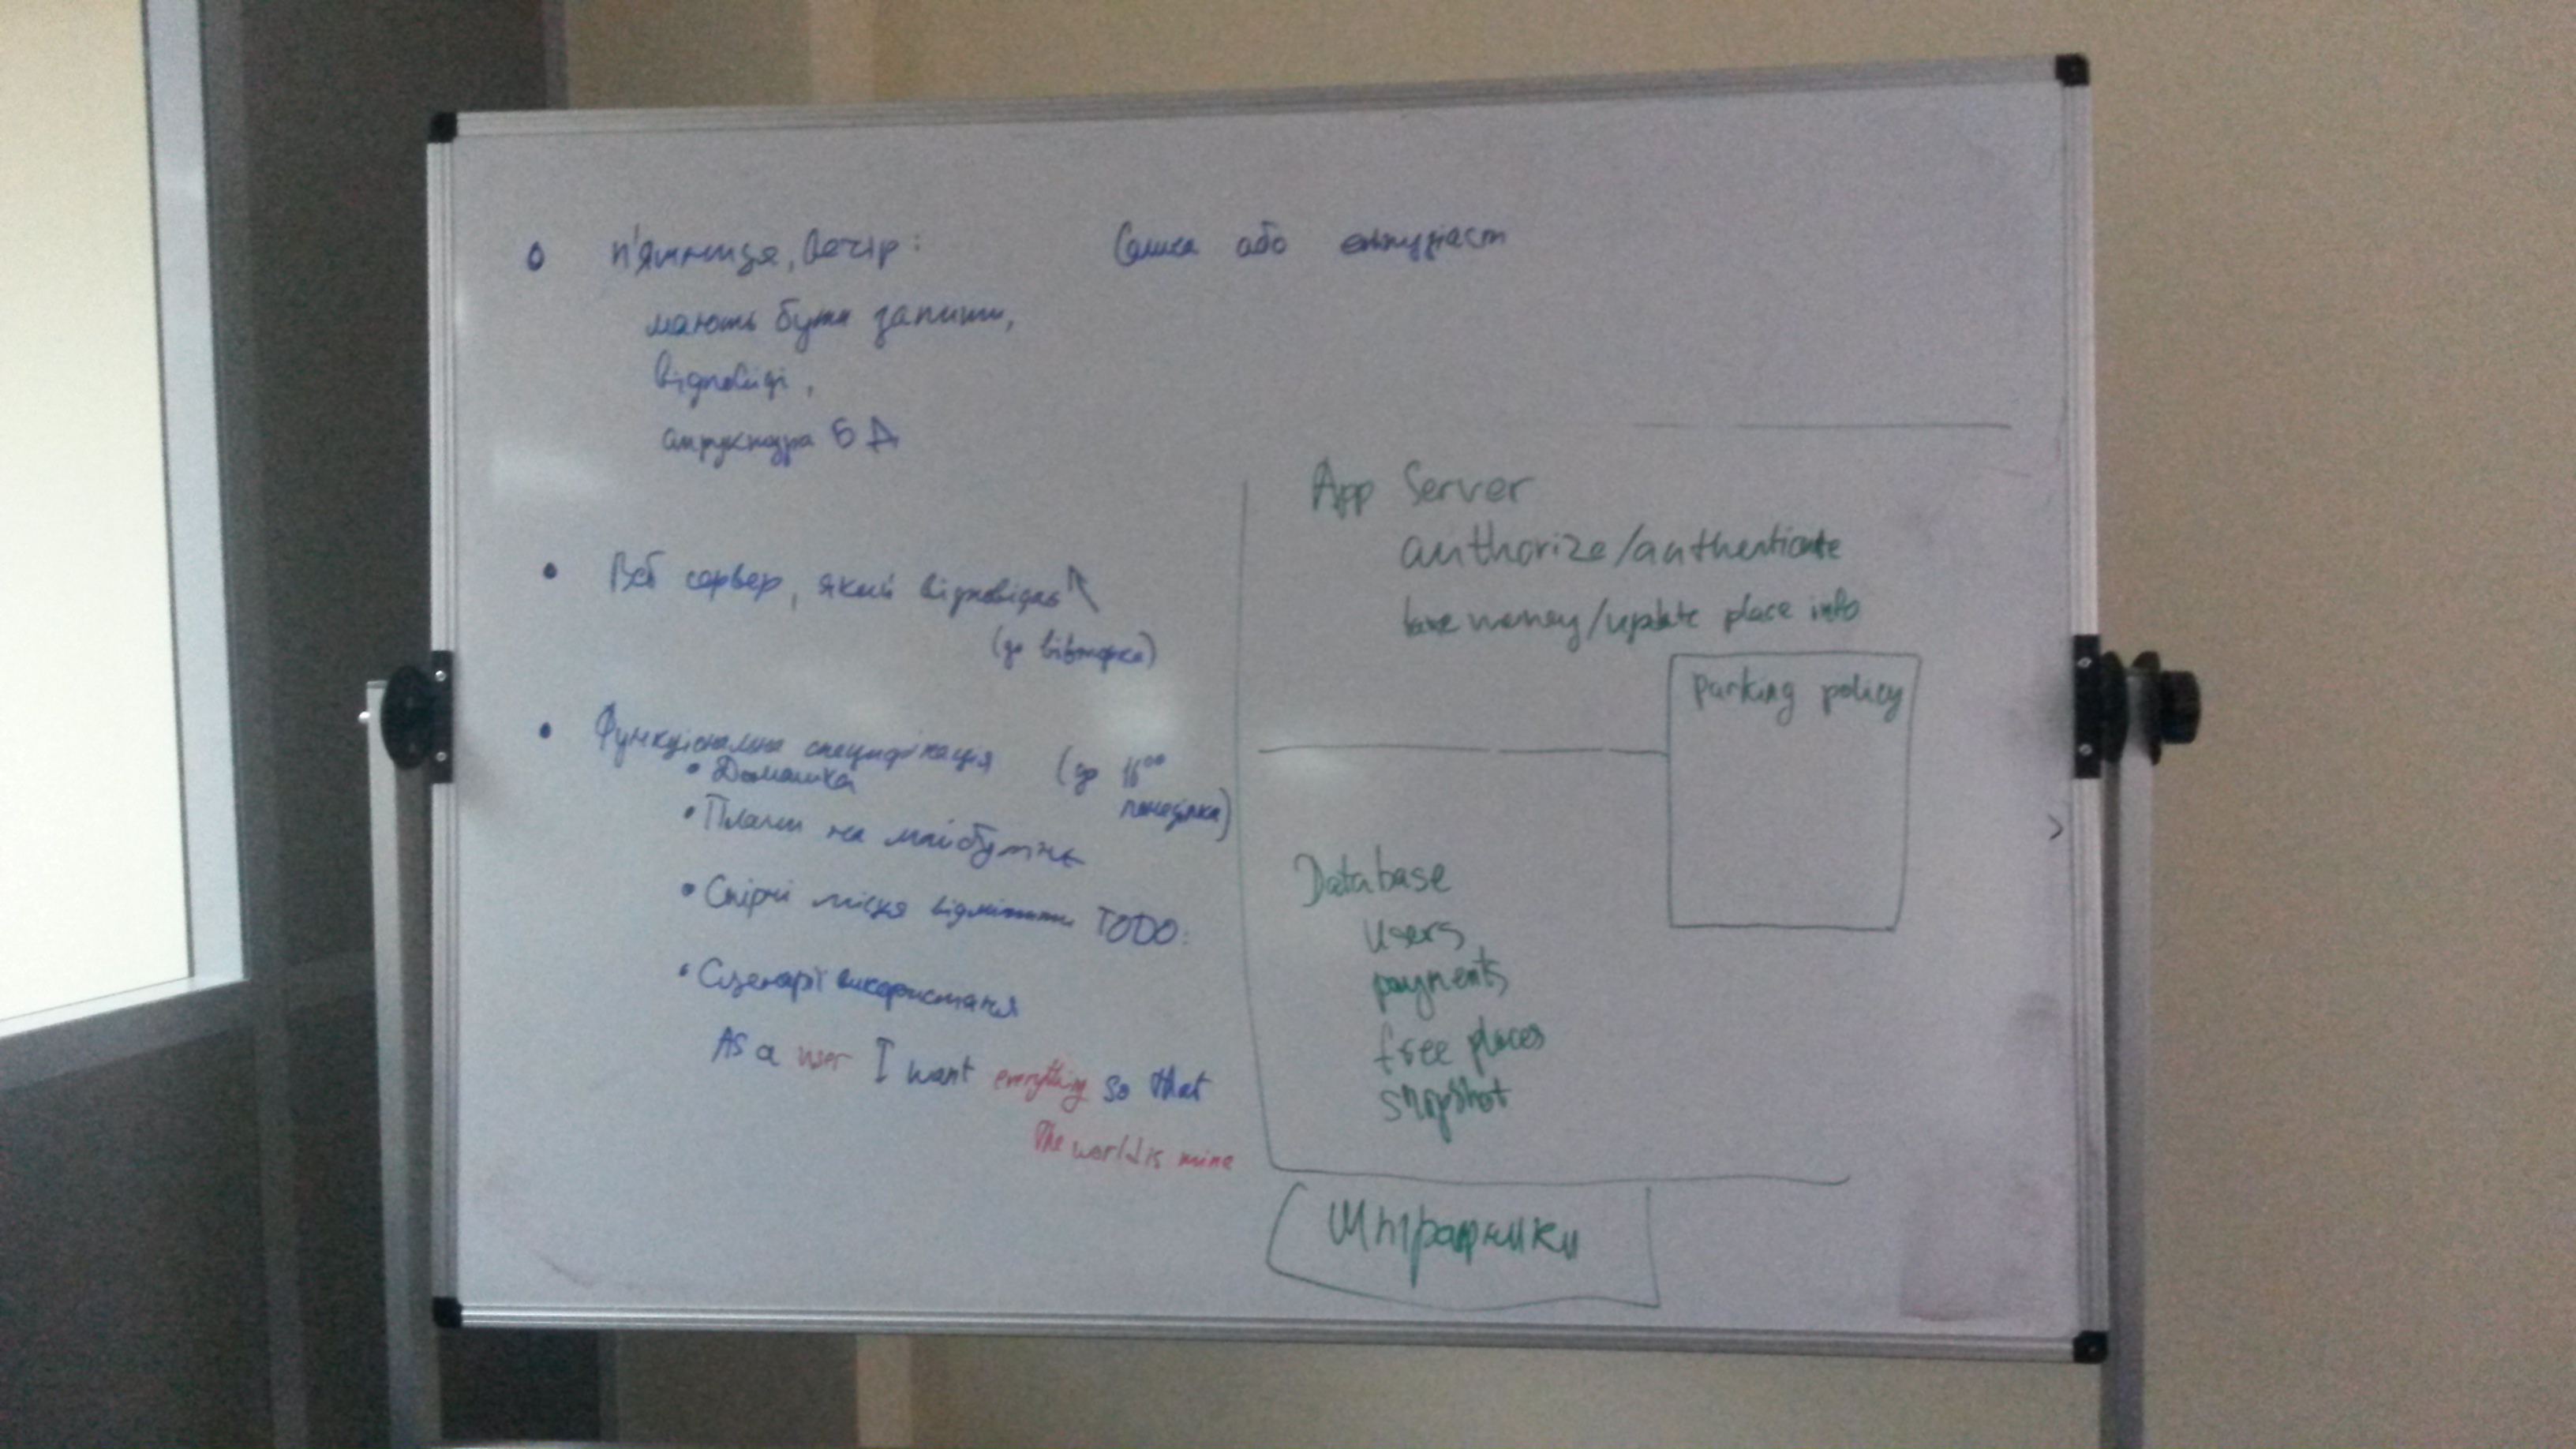 п'ятниця, вечір:
мають бути запити,
відповіді,
структура БД
або ентузіаст
Веб сервер, який відповідає
(до вівторка)
Функціональна специфікація (до 16⁰⁰
понеділка)
• Домашка
• Плани на майбутнє
• Спірні місця відмітити TODO:
• Сценарії використання
As a user I want everything so that
The world is mine
App Server
authorize/authenticate
take money/update place info
parking policy
Database
users
payments
free places
snapshot
Штрафники